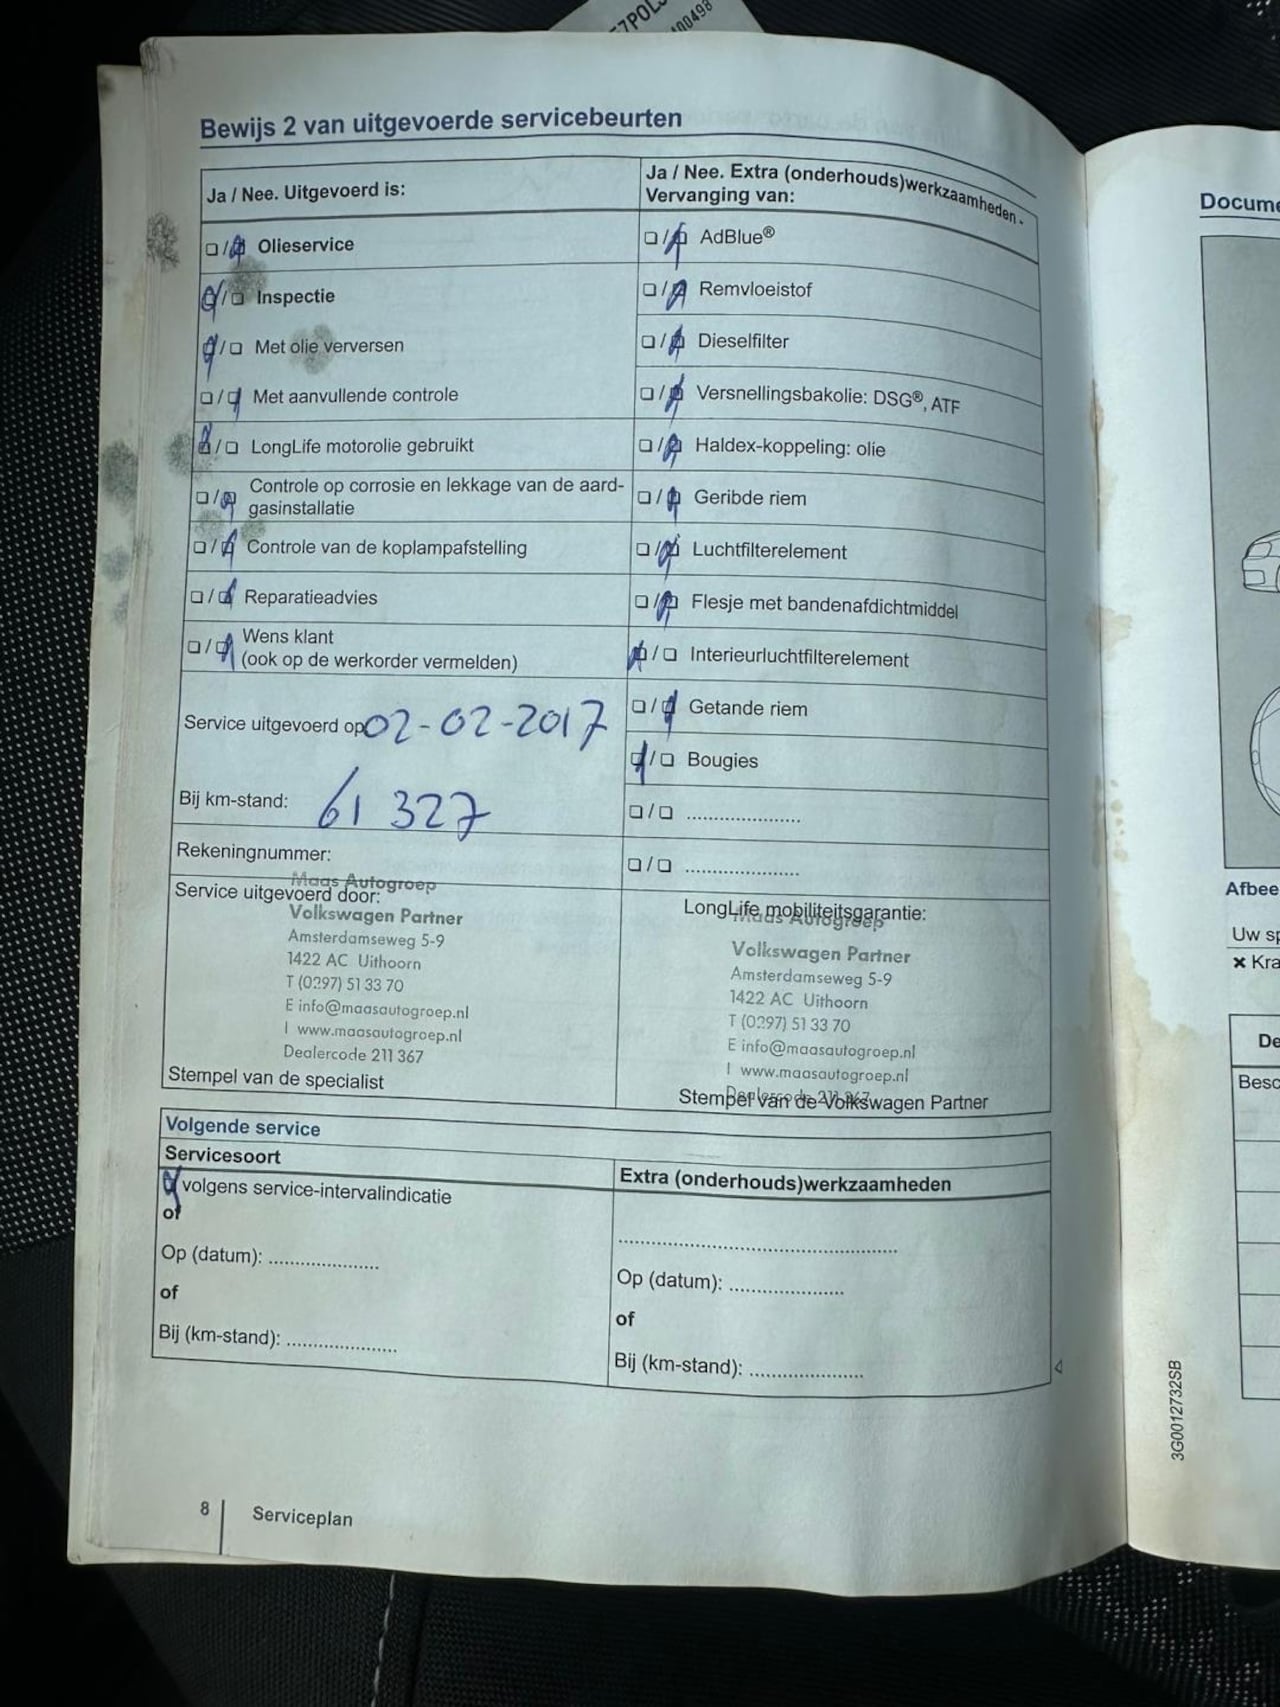 Bewijs 2 van uitgevoerde servicebeurten
Ja / Nee. Uitgevoerd is:
☐ / ☒ Olieservice
☒ / ☐ Inspectie
☒ / ☐ Met olie verversen
☐ / ☒ Met aanvullende controle
☒ / ☐ LongLife motorolie gebruikt
☐ / ☒ Controle op corrosie en lekkage van de aard-
gasinstallatie
☐ / ☒ Controle van de koplampafstelling
☐ / ☒ Reparatieadvies
☐ / ☒ Wens klant
(ook op de werkorder vermelden)
Service uitgevoerd op 02-02-2017
Bij km-stand: 61 327
Rekeningnummer:
Ja / Nee. Extra (onderhouds)werkzaamheden -
Vervanging van:
☐ / ☒ AdBlue®
☐ / ☒ Remvloeistof
☐ / ☒ Dieselfilter
☐ / ☒ Versnellingsbakolie: DSG®, ATF
☐ / ☒ Haldex-koppeling: olie
☐ / ☒ Geribde riem
☐ / ☒ Luchtfilterelement
☐ / ☒ Flesje met bandenafdichtmiddel
☒ / ☐ Interieurluchtfilterelement
☐ / ☒ Getande riem
☒ / ☐ Bougies
☐ / ☐ .....................
☐ / ☐ .....................
Service uitgevoerd door:
Maas Autogroep
Volkswagen Partner
Amsterdamseweg 5-9
1422 AC Uithoorn
T (0297) 51 33 70
E info@maasautogroep.nl
I www.maasautogroep.nl
Dealercode 211 367
Stempel van de specialist
LongLife mobiliteitsgarantie:
Maas Autogroep
Volkswagen Partner
Amsterdamseweg 5-9
1422 AC Uithoorn
T (0297) 51 33 70
E info@maasautogroep.nl
I www.maasautogroep.nl
Dealercode 211 367
Stempel van de Volkswagen Partner
Volgende service
Servicesoort
☒ volgens service-intervalindicatie
of
Op (datum): .....................
of
Bij (km-stand): .....................
Extra (onderhouds)werkzaamheden
.....................................................
Op (datum): .....................
of
Bij (km-stand): .....................
8
Serviceplan
3G0012732SB
Docume
Afbee
Uw sp
× Kra
De
Besc
400498